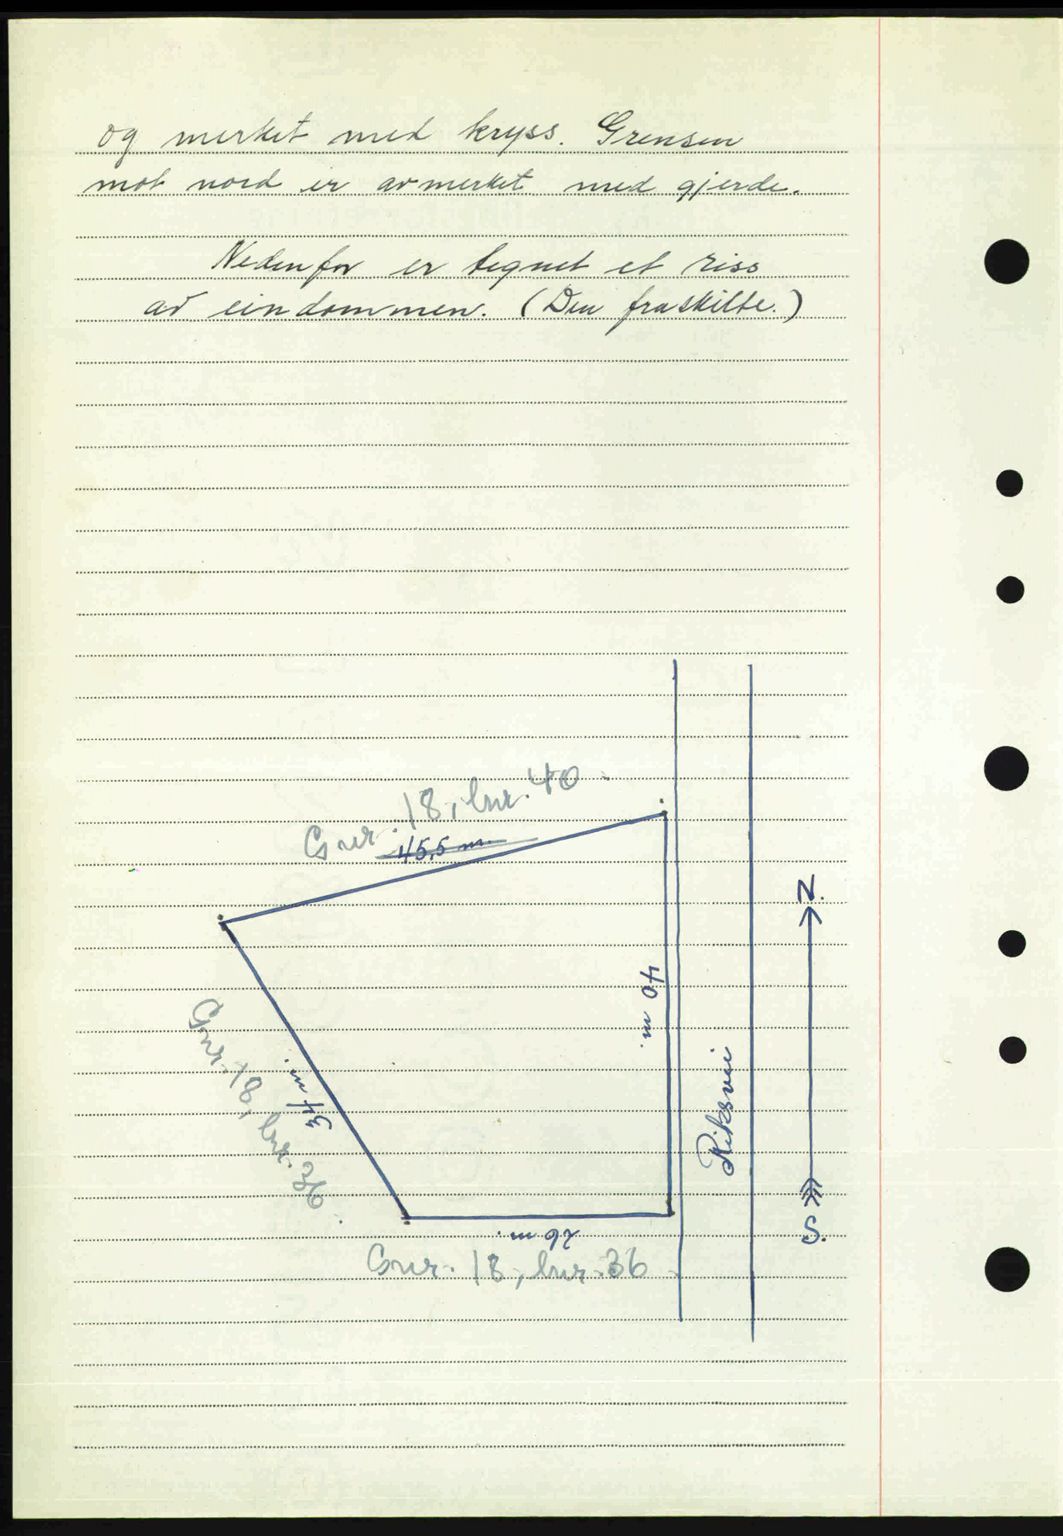 og merket med kryss. Grensen
mot nord er avmerket med gjerde.
Nedenfor er tegnet et riss
av eindommen. (Den fraskilte.)
Gnr. 18, bnr. 40.
45,5 m.
N.
40 m.
Gnr. 18, bnr. 36.
34 m.
Riksvei
S.
26 m.
Gnr. 18, bnr. 36.